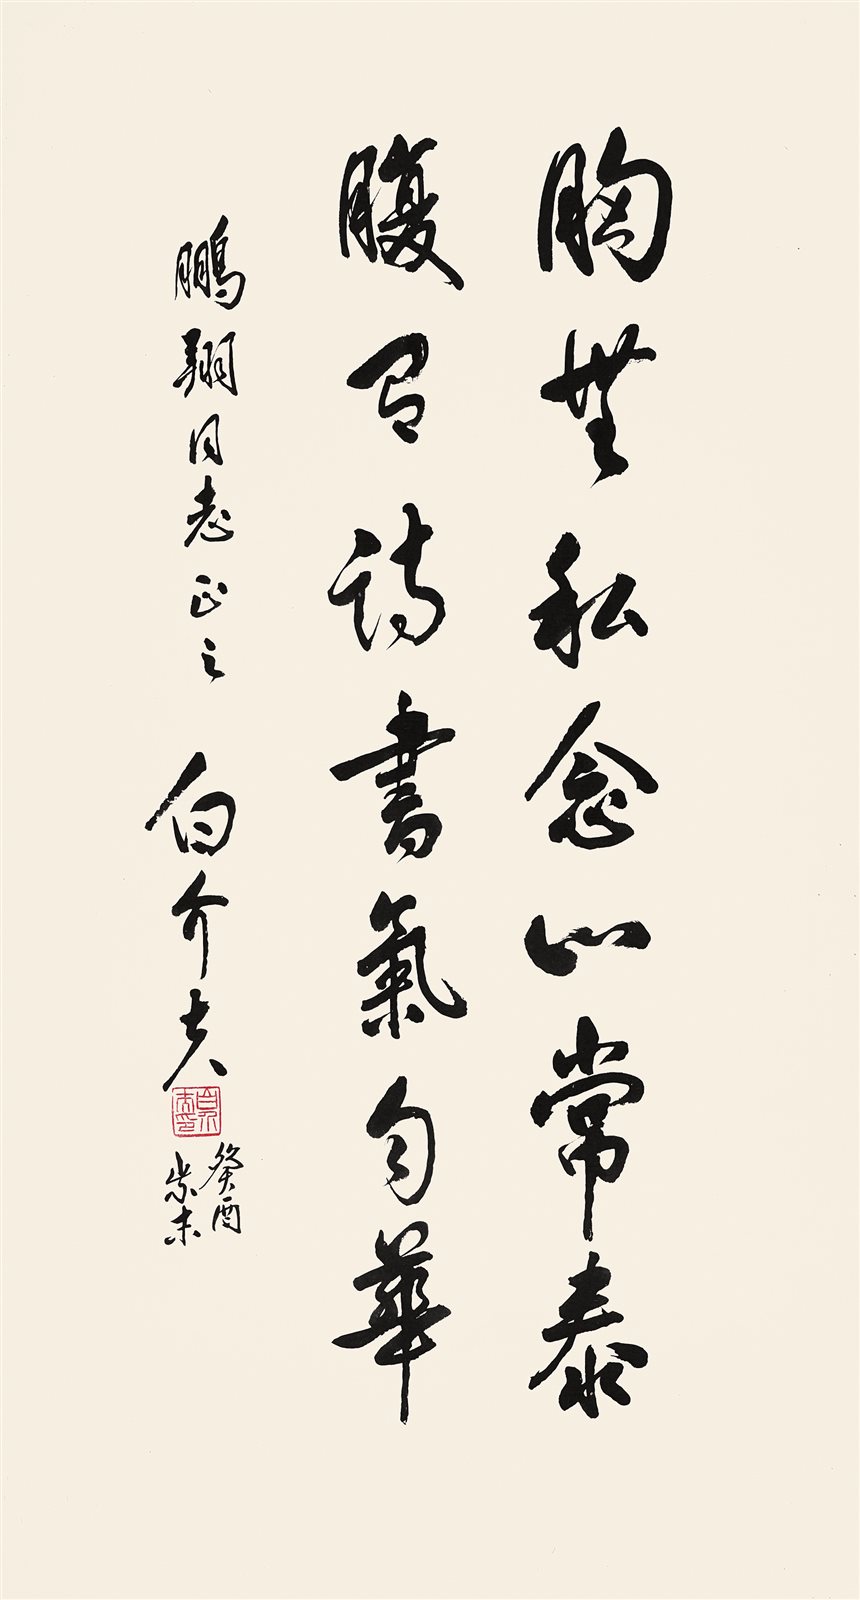 胸無私念心常泰
腹有詩書氣自華
鵬翔同志正之 白介夫
白介夫印
癸酉
歲末